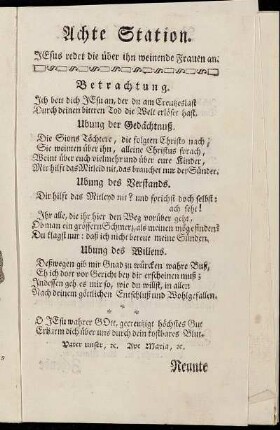 Achte Station.
JEsus redet die über ihn weinende Frauen an.
Betrachtung.
Ich bett dich JEsu an, der du am Creutzeslast
Durch deinen bitteren Tod die Welt erlöset hast.
Ubung der Gedächtnuß.
Die Sions Töchtere, die folgten Christo nach,
Sie weinten über ihn, alleine Christus sprach,
Weint über euch vielmehr und über eure Kinder,
Mir hilft das Mitleid nit, das brauchet nur der Sünder.
Ubung des Verstands.
Dir hilft das Mitleyd nit? und sprichst doch selbst:
ach sehe!
Ihr alle, die ihr hier den Weg vorüber geht,
Ob man ein grössern Schmerz, als meinen mög finden?
Du klagst nur: daß ich nicht bereue meine Sünden.
Ubung des Willens.
Deßwegen gib mir Gnad zu würcken wahre Buß,
Eh ich dort vor Gericht bey dir erscheinen muß;
Indessen geh es mir so, wie du willst, in allen
Nach deinem göttlichen Entschluß und Wohlgefallen.
* * *
O JEsu wahrer GOtt, gecreutzigt höchstes Gut
Erbarm dich über uns durch dein kostbares Blut.
Vater unser, ꝛc. Ave Maria, ꝛc.
Neunte